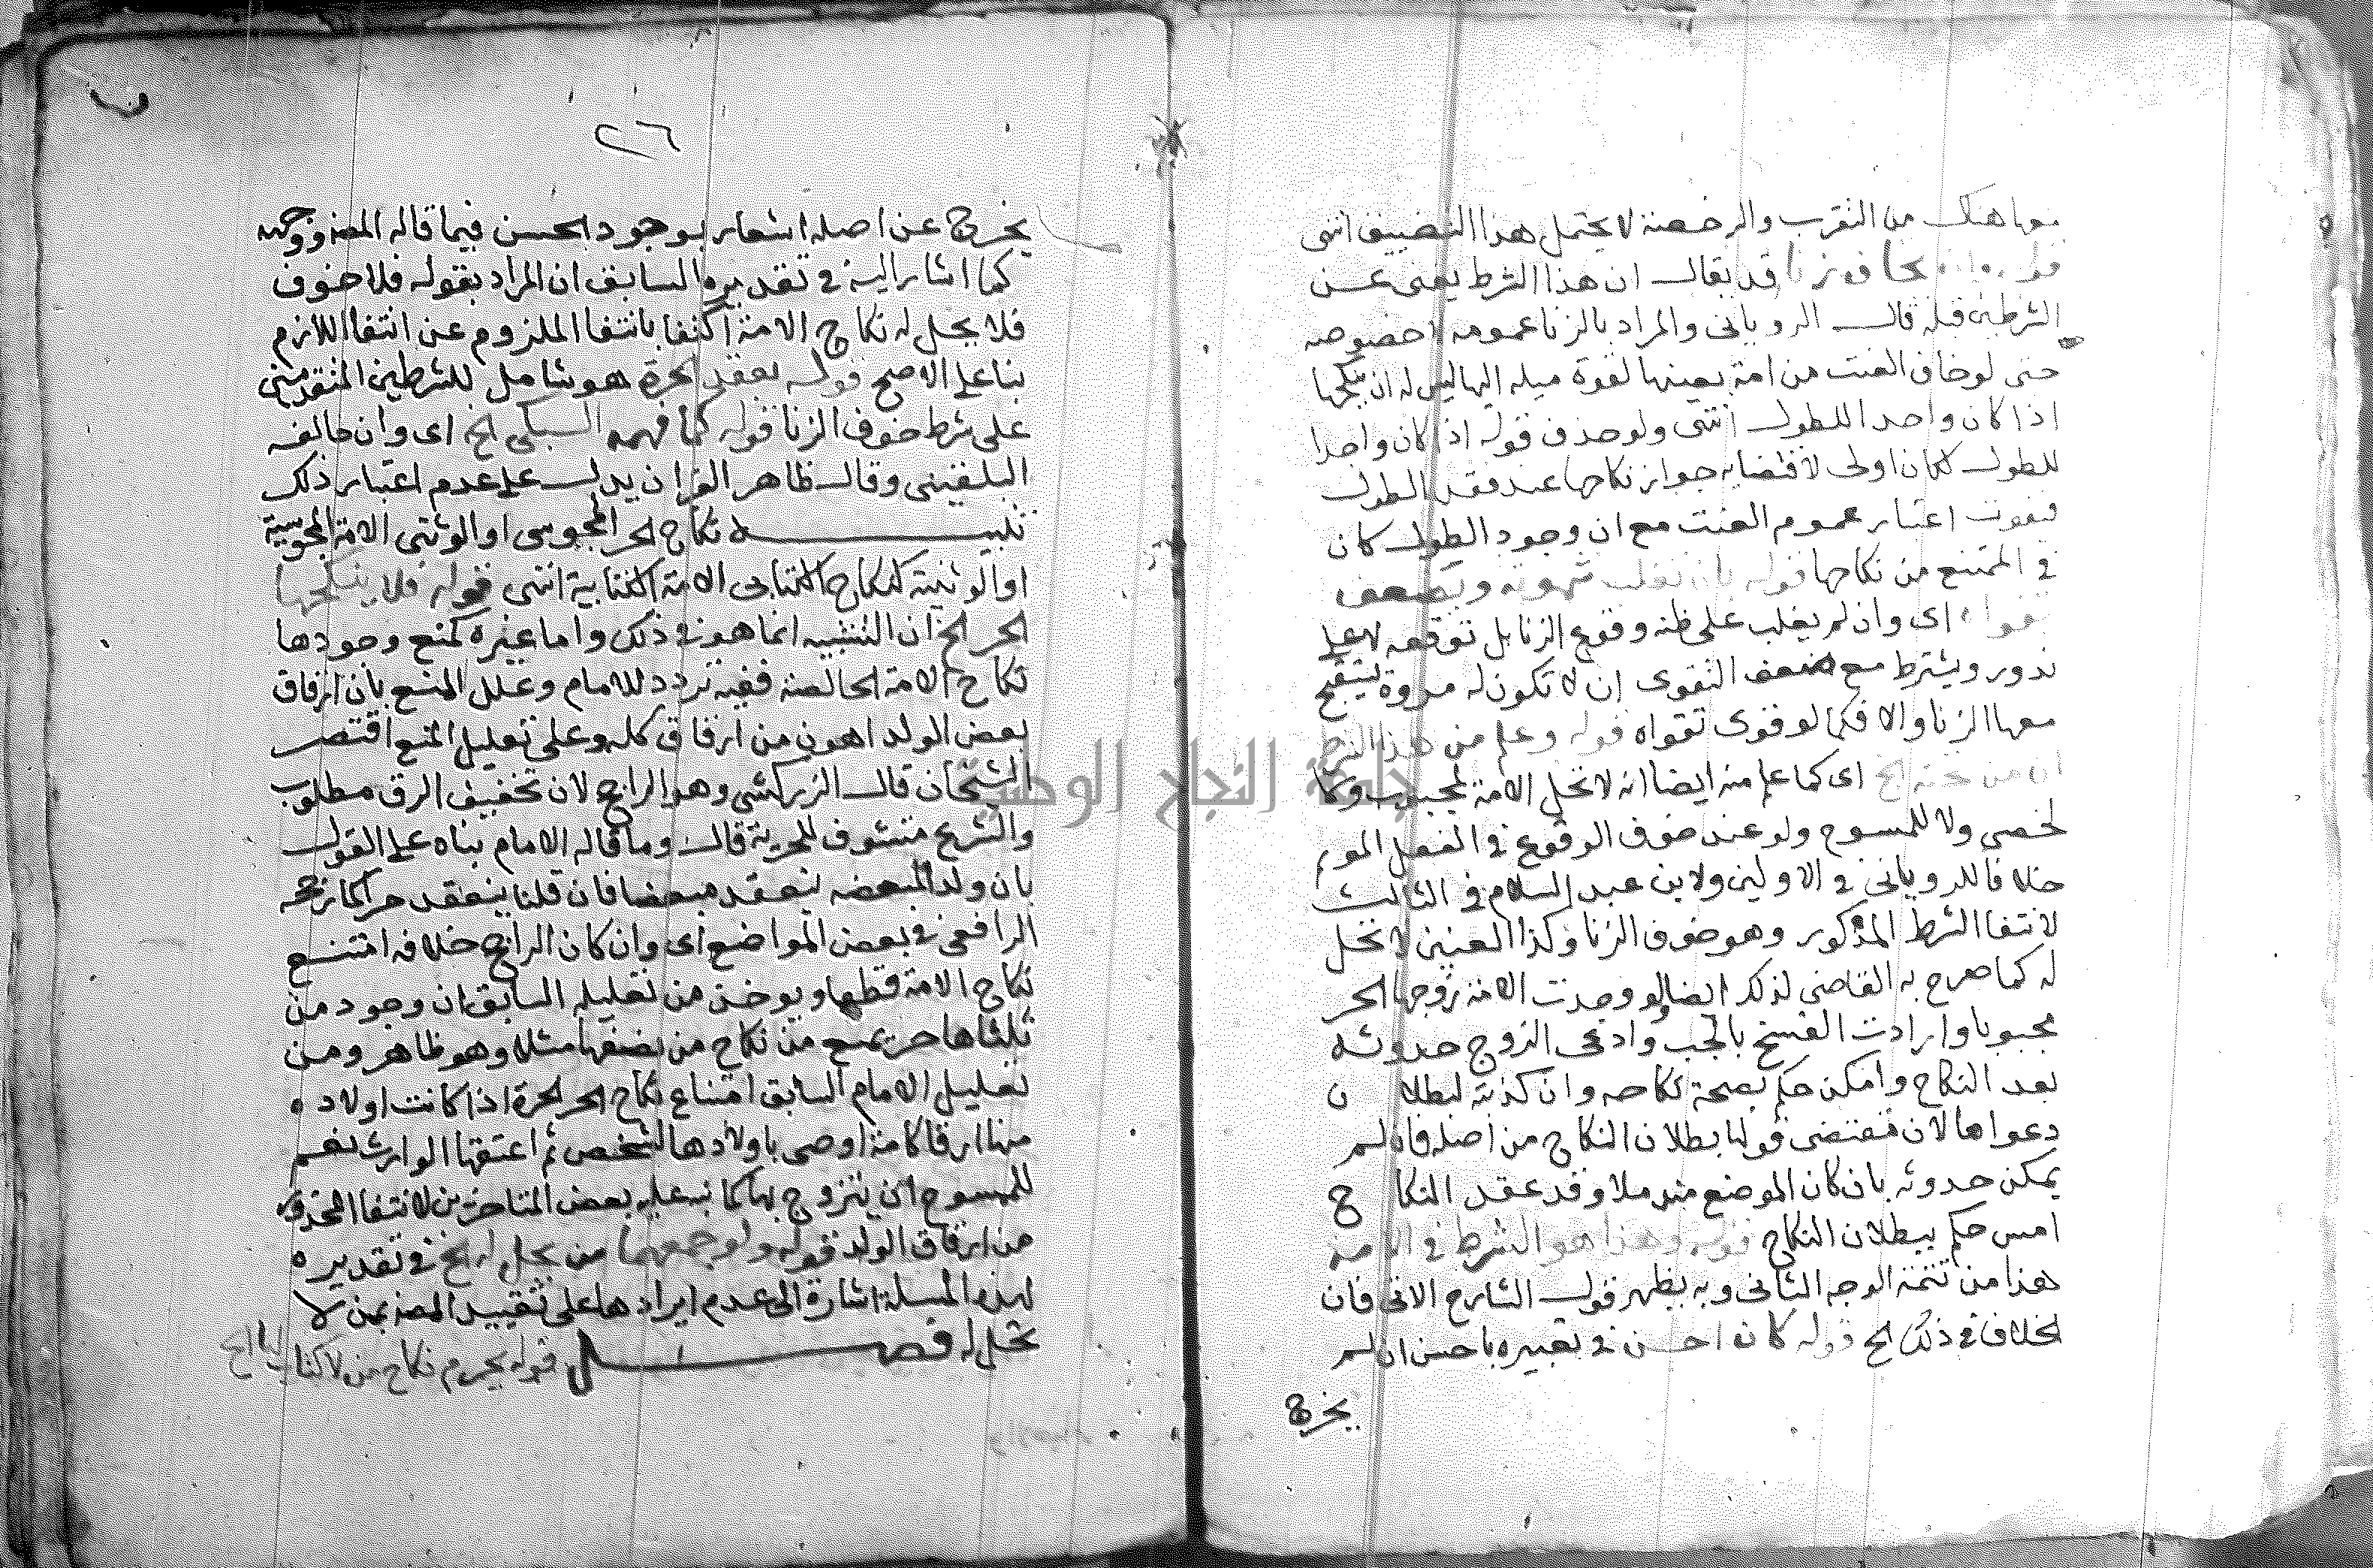 معها هناك من التقرب والرخصة لا يحتمل هذا التضييق انتهى
قوله وان يخاف زنا قد يقال ان هذا الشرط يغنى عن
الشرطين قبله قال الرويانى والمراد بالزنا عمومه لا خصوصه
حتى لو خاف العنت من امة بعينها لقوة ميله اليها ليس له ان ينكحها
اذا كان واجدا للطول انتهى ولو حذف قوله اذا كان واجدا
للطول لكان اولى لاقتضايه جواز نكاحها عند فقد الطول
فيفوت اعتبار عموم العنت مع ان وجود الطول كان
فى المتمنع من نكاحها قوله بان تغلب شهوته وتضعف
تقواه اى وان لم يغلب على ظنه وقوع الزنا بل توقعه لا على
ندور ويشترط مع ضعف التقوى ان لا تكون له مروة يستقبح
معها الزنا والا فكما لو قوى تقواه قوله وعلم من هذا الشرط
ان من تحته الخ اى كما علم منه ايضا انه لا تحل الامة لمجبوب ولا
لخصى ولا للممسوح ولو عند خوف الوقوع فى الفعل الموثم
خلافا للرويانى فى الاولين ولابن عبد السلام فى الثالث
لانتفا الشرط المذكور وهو خوف الزنا وكذا العنين لا تحل
له كما صرح به القاضى لذلك ايضا ولو وجدت الامة زوجها الحر
مجبوبا وارادت الفسخ بالجب وادعى الزوج حدوثه
بعد النكاح وامكن حكم بصحة نكاحه وان كذبته لبطلان
دعواها لان مقتضى قولها بطلان النكاح من اصله فان لم
يمكن حدوثه بان كان الموضع مندملا وقد عقد النكاح
امس حكم ببطلان النكاح قوله وهذا هو الشرط فى الامة
هذا من تتمة الوجه الثانى وبه يظهر قول الشارح الاتى فان
الخلاف فى ذلك الخ قوله كان احسن فى تعبيره باحسن ان لم
يخرج
٢٦
يخرج عن اصله اشعار بوجود الحسن فيما قاله المصنف ووجهه
كما اشار اليه فى تقديره السابق ان المراد بقوله فلا خوف
فلا يحل له نكاح الامة اكتفا بانتفا الملزوم عن انتفا اللازم
بنا على الاصح قوله بعقد الحرة هو شامل للشرطين المتقدمين
على شرط خوف الزنا قوله كما فهمه السبكى الخ اى وان خالفه
البلقينى وقال ظاهر القران يدل على عدم اعتبار ذلك
تنبيه نكاح الحر المجوسى او الوثنى الامة المجوسية
او الوثنية كنكاح الكتابى الامة الكتابية انتهى قوله فلا ينكحها
الحر الخ ان التشبيه انما هو فى ذلك واما غيره كمنع وجودها
نكاح الامة الخالصة ففيه تردد للامام وعلل المنع بان ارقاق
بعض الولد اهون من ارقاق كله وعلى تعليل المنع اقتصر
الشيخان قال الزركشى وهو الراجح لان تخفيف الرق مطلوب
والشرع متشوف للحرية قال وما قاله الامام بناه على القول
بان ولد المبعضه ينعقد مبعضا فان قلنا ينعقد حرا كما رجحه
الرافعى فى بعض المواضع اى وان كان الراجح خلافه امتنع
نكاح الامة قطعا ويوخذ من تعليله السابق ان وجود من
ثلثاها حر يمنع من نكاح من نصفها مثلا وهو ظاهر ومن
تعليل الامام السابق امتناع نكاح الحر الحرة اذا كانت اولاده
منها ارقا كامة اوصى باولادها لشخص ثم اعتقها الوارث نعم
للممسوح ان يتزوج بها كما نبه عليه بعض المتاخرين لانتفا المحذور
من ارقاق الولد قوله ولو جمعهما من يحل له الخ فى تقديره
لهذه المسلة اشارة الى عدم ايرادها على تقييد المصنف بمن لا
تحل له فصل قوله يحرم نكاح من لا كتاب لها الخ
جامعة النجاح الوطنية